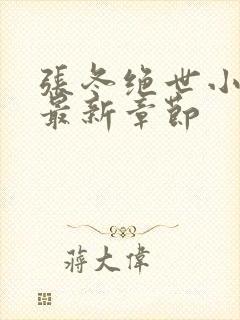 張冬绝世小
最新章節
蔣大偉